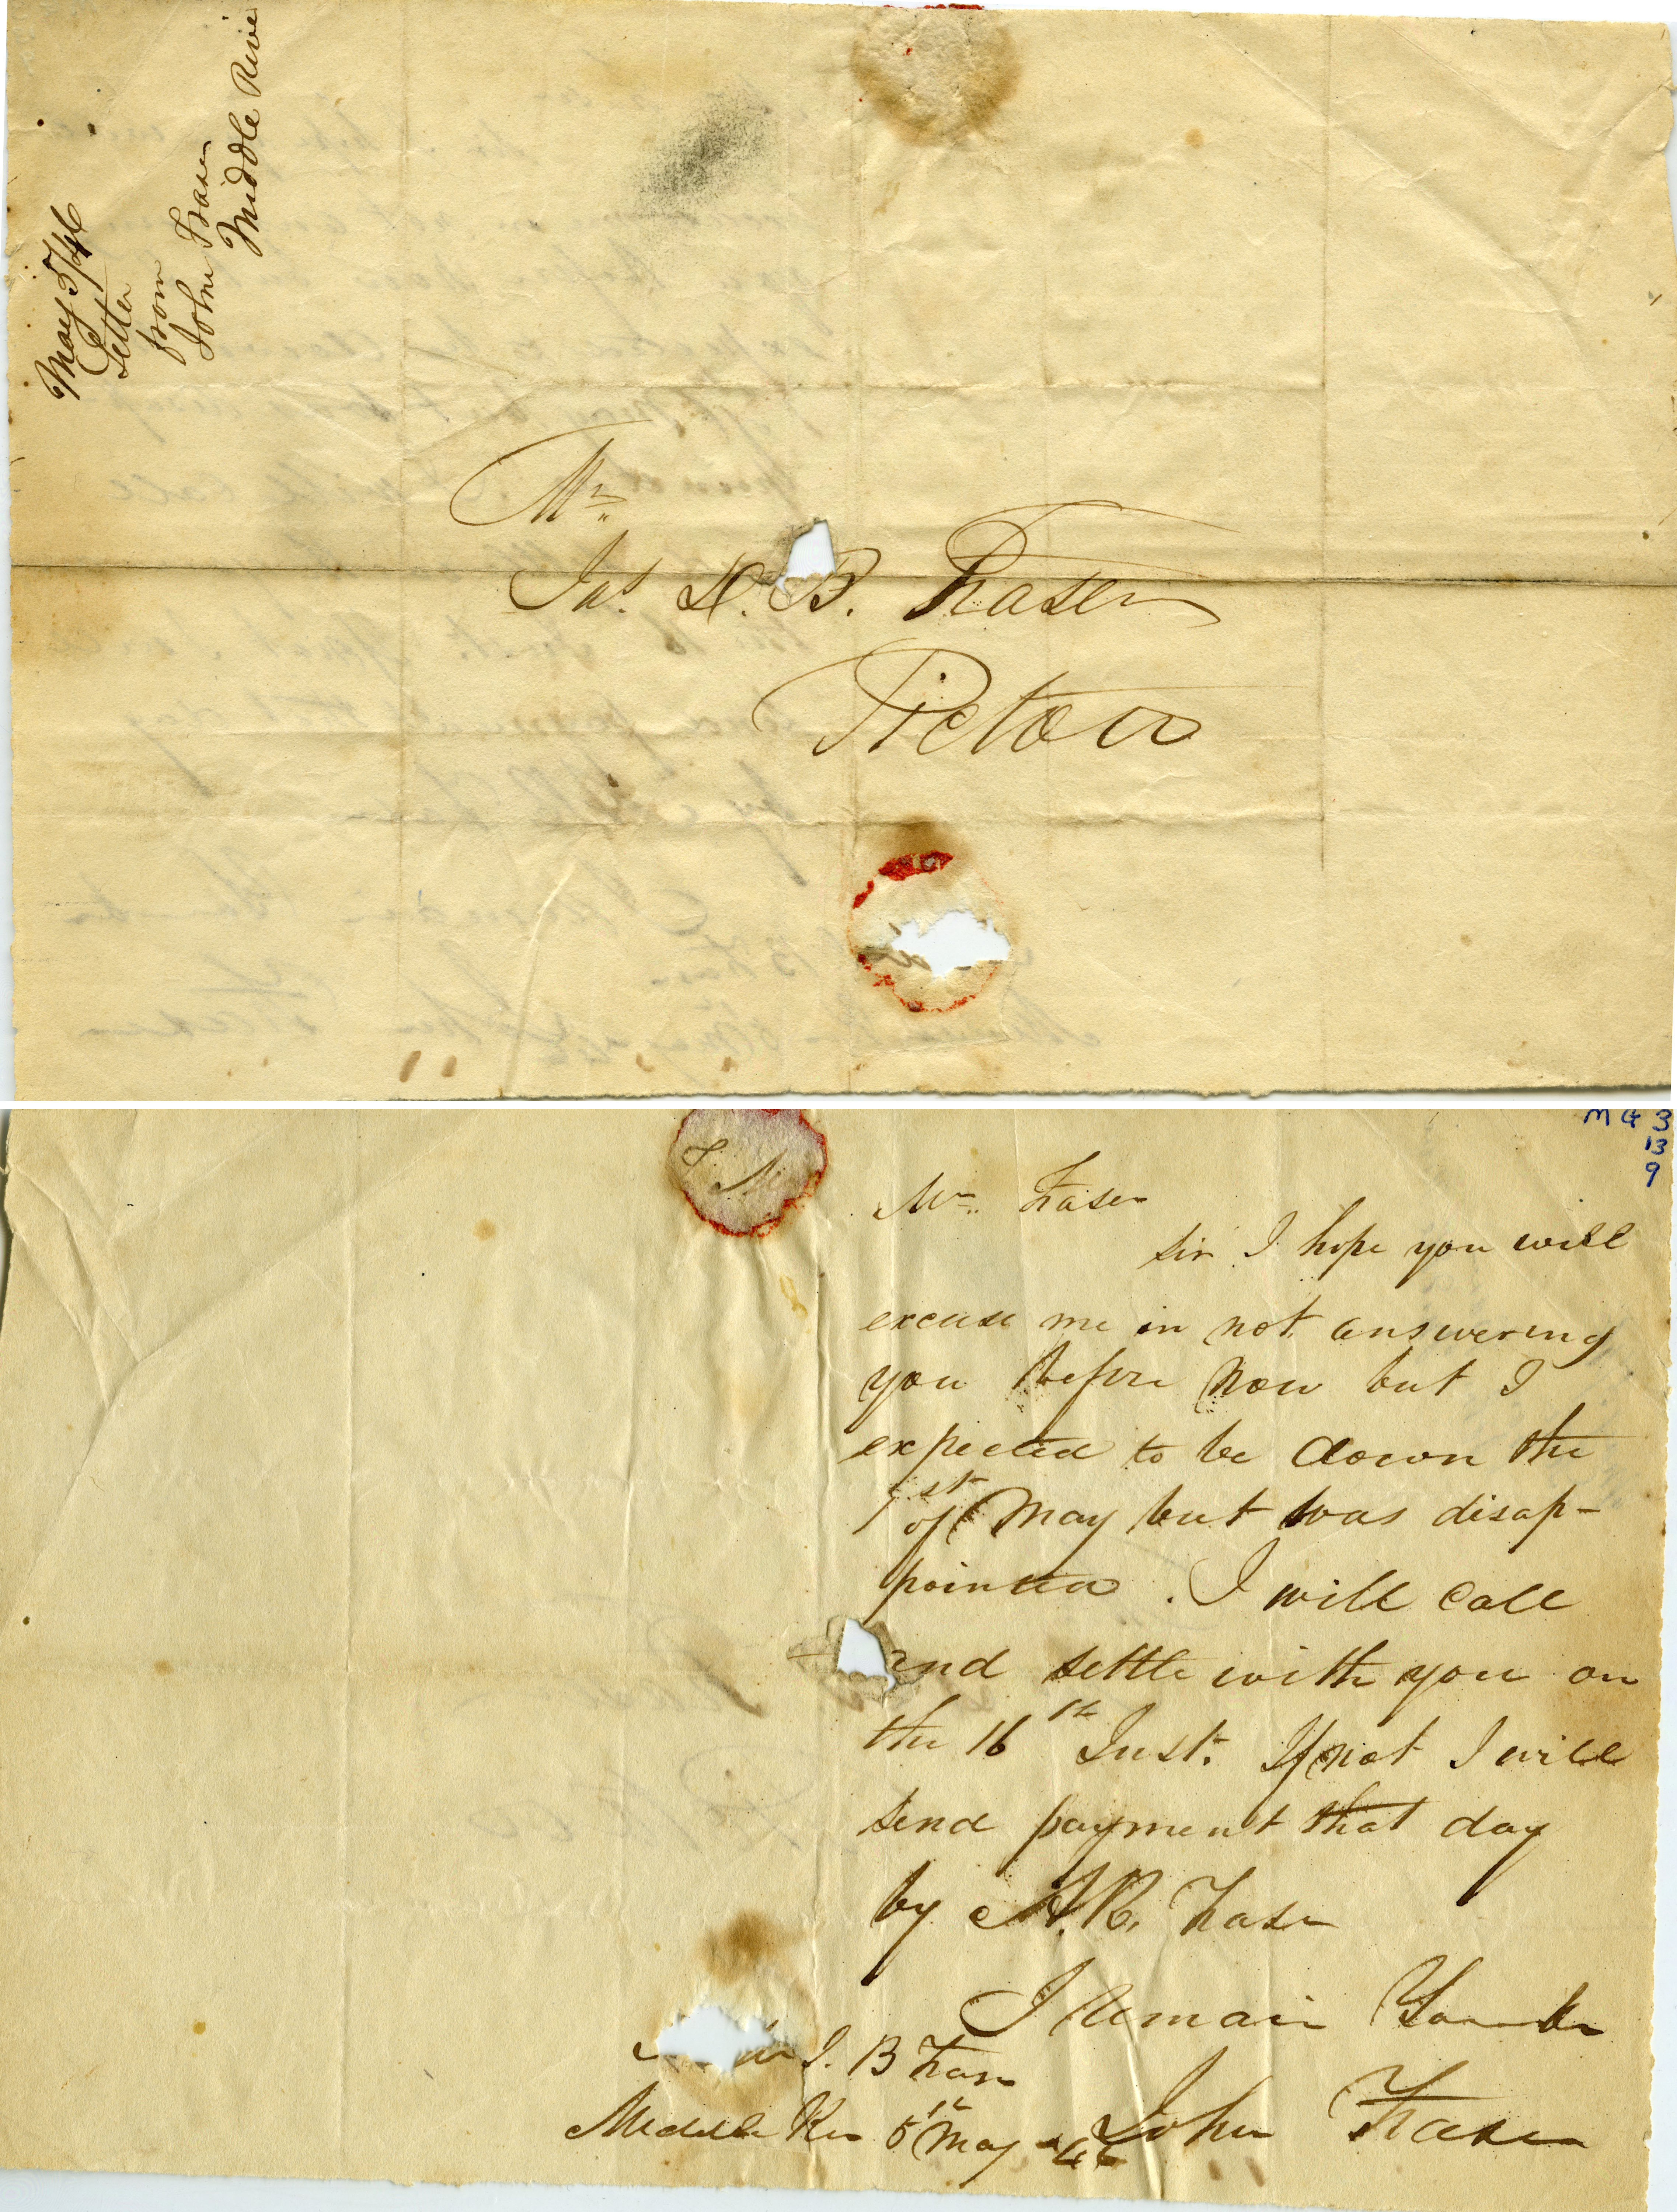 May 5/46
Letter
from
John Fraser
Middle Rive
Mr
Jas. D. B. Fraser
Pictou
MG 3
13
9
Mr. Fraser
Sir I hope you will
excuse me in not answering
you before now but I
expected to be down the
1st of May but was disap-
pointed. I will call
and settle with you on
the 16th Inst. If not I will
send payment that day
by A. R. Fraser
I Remain Yours
John Fraser
B Fraser
Middle River 5th May 46